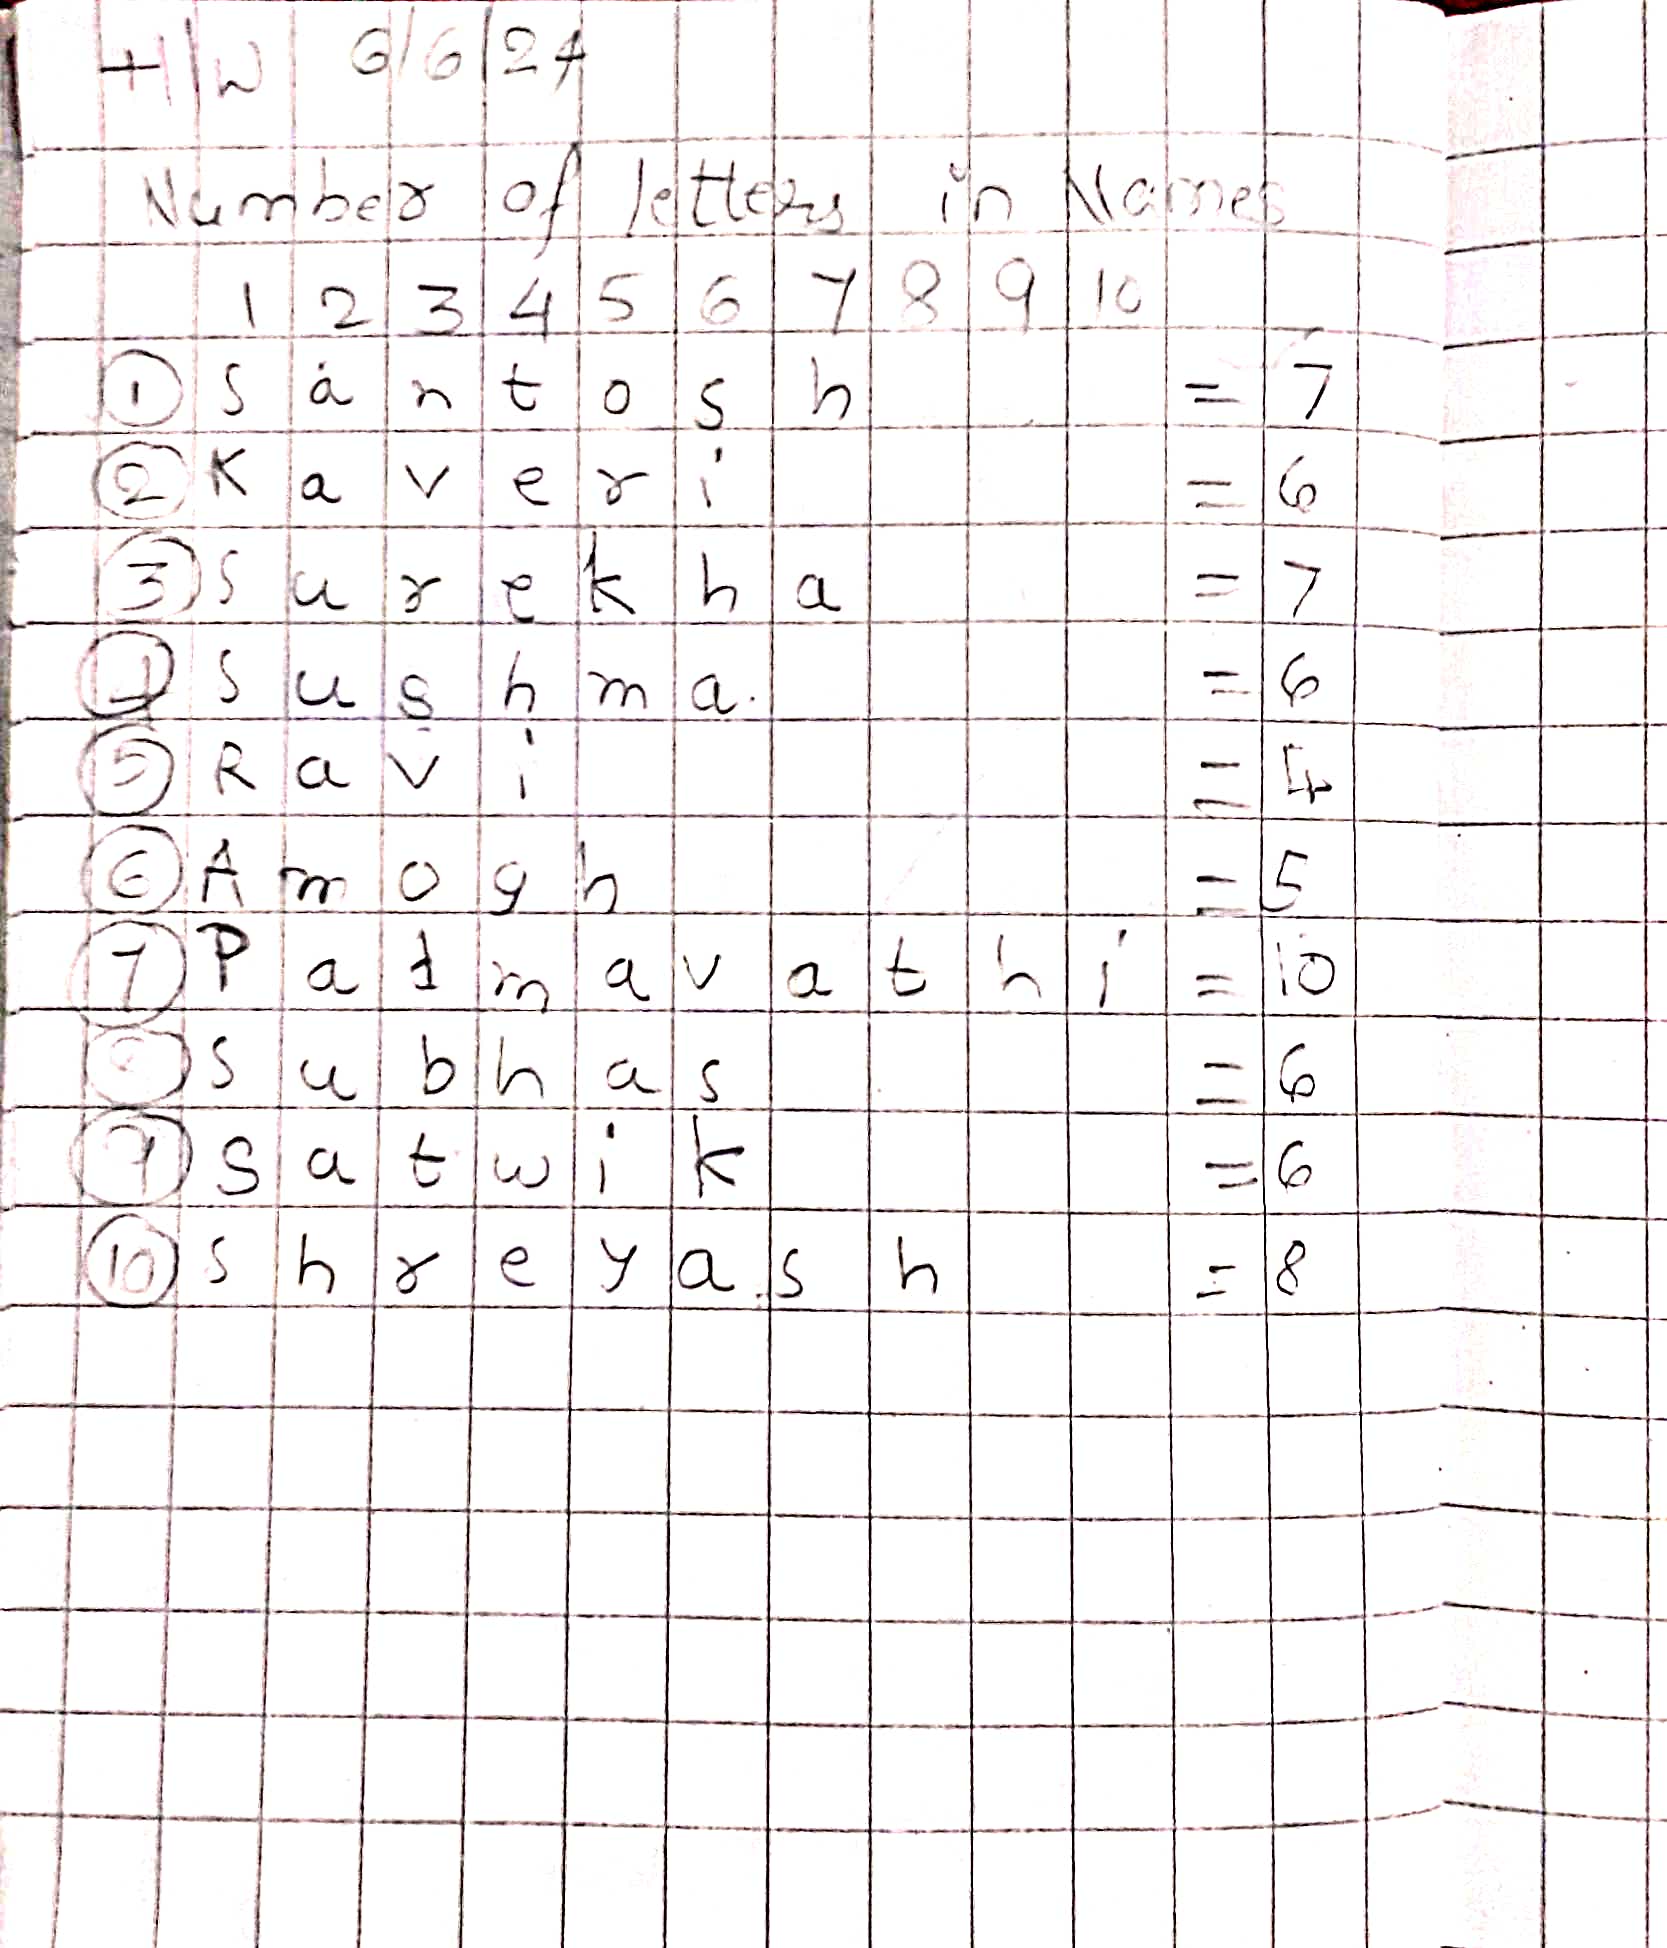 H/W 6/6/24
Number of letters in Names
1 2 3 4 5 6 7 8 9 10
① S a n t o s h = 7
② K a v e r i = 6
③ S u r e k h a = 7
④ S u s h m a. = 6
⑤ R a v i = 4
⑥ A m o g h = 5
⑦ P a d m a v a t h i = 10
⑧ S u b h a s = 6
⑨ S a t w i k = 6
⑩ S h r e y a s h = 8